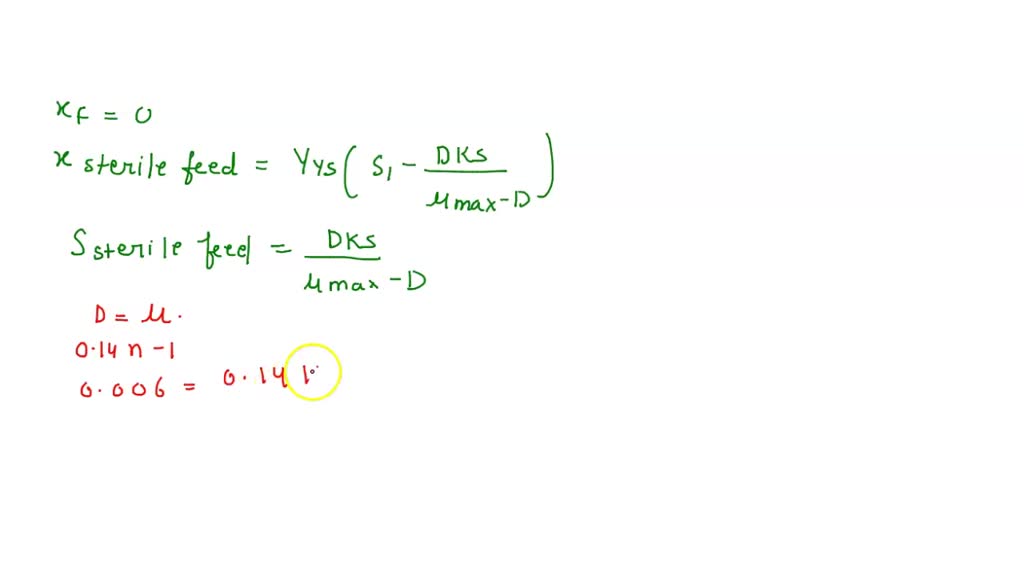 x_F = 0
x sterile feed = Y_YS ( S_1 - DKs / μmax - D )
S sterile feed = DKs / μmax - D
D = μ.
0.14 n - 1
0.006 = 0.14 1